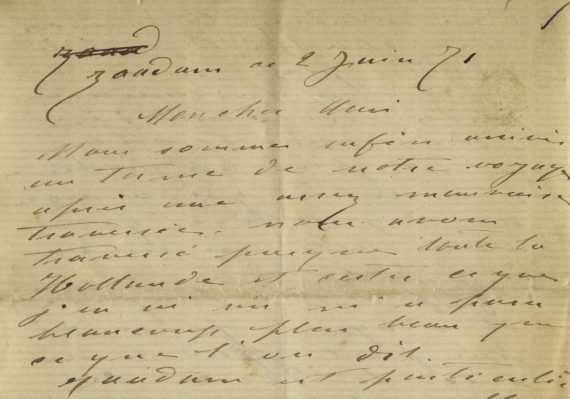 zaad
zaadam ce 2 Juin 71
Mon cher Ami
Nous sommes enfin arrivés
au terme de notre voyage
après une assez mauvaise
traversée. nous avons
traversé presque toute la
Hollande et certes ce que
j'en ai vu m'a paru
beaucoup plus beau que
ce que l'on dit.
Zaadam est particuliè